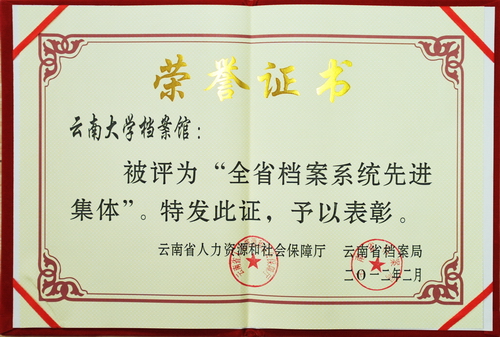 荣誉证书
云南大学档案馆：
被评为“全省档案系统先进
集体”。特发此证，予以表彰。
云南省人力资源和社会保障厅 云南省档案局
二〇一二年二月